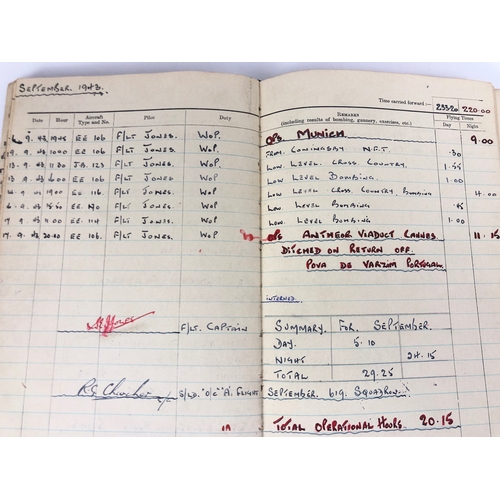 SEPTEMBER 1943.
Time carried forward :— 233.20 220.00
Date Hour Aircraft Type and No. Pilot Duty REMARKS (including results of bombing, gunnery, exercises, etc.) Flying Times Day Night
9. 43 19.45 EE 106 F/LT JONES. WOP. OPS MUNICH 9.00
9. 43 EE 106 F/LT JONES. WOP. FROM CONINGSBY N.F.T. .30
9. 43 JA 123 F/LT JONES. WOP. LOW LEVEL CROSS COUNTRY. 1.55
9. 43 EE 106 F/LT JONES. WOP. LOW LEVEL BOMBING. 1.00
9. 43 EE 116. F/LT JONES. WOP. LOW LEVEL CROSS COUNTRY. BOMBING 4.00
9. 43 F/LT JONES. WOP. LOW LEVEL BOMBING .45
9. 43 EE 114 F/LT JONES WOP. LOW LEVEL BOMBING 1.00
9. 43 EE 106. F/LT JONES. WOP OPS ANTHEOR VIADUCT CANNES 11.15
DITCHED ON RETURN OFF.
POVA DE VARZIM PORTUGAL.
INTERNED.
F/LT. CAPTAIN SUMMARY FOR SEPTEMBER.
DAY. 5.10
NIGHT 24.15
TOTAL 29.25
S/LD. "O/C" "A" FLIGHT SEPTEMBER. 619 SQUADRON.
TOTAL OPERATIONAL HOURS. 20.15